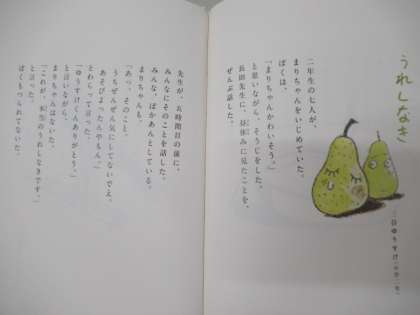 うれしなき
二年生の七人が、
まりちゃんをいじめていた。
ぼくは、
「まりちゃんかわいそう。」
と思いながら、そうじをした。
長田先生に、昼休みに見たことを、
ぜんぶ話した。
先生が、五時間目の前に、
みんなにそのことを話した。
みんな、ぽかあんとしている。
まりちゃんも、
「あっ、そのこと、
うちぜんぜん気にしてないでえ。
あそびよったんやもん。」
とわらって言った。
「ゆうすけくんありがとう。」
と言いながら、
まりちゃんはないた。
「これが、長田先生のうれしなきです。」
と言った。
ぼくもつられてないた。